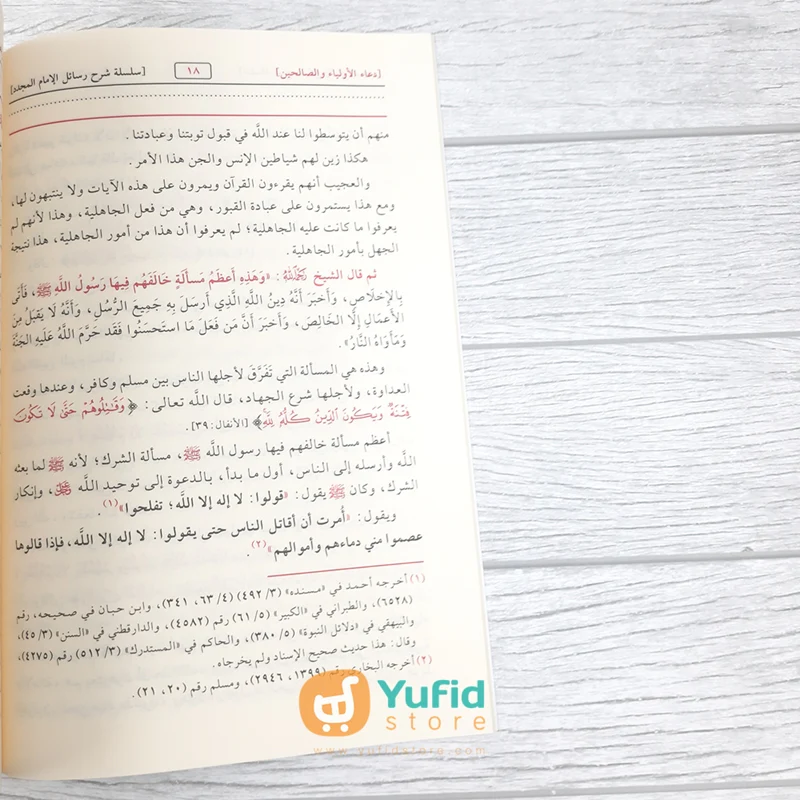 [دعاء الأولياء والصالحين] ١٨ [سلسلة شرح رسائل الإمام المجدد]
منهم أن يتوسطوا لنا عند اللَّه في قبول توبتنا وعبادتنا .
هكذا زين لهم شياطين الإنس والجن هذا الأمر .
والعجيب أنهم يقرءون القرآن ويمرون على هذه الآيات ولا ينتبهون لها،
ومع هذا يستمرون على عبادة القبور، وهي من فعل الجاهلية، وهذا لأنهم لم
يعرفوا ما كانت عليه الجاهلية؛ لم يعرفوا أن هذا من أمور الجاهلية، هذا نتيجة
الجهل بأمور الجاهلية .
ثم قال الشيخ رَحِمَهُ اللَّهُ : «وَهَذِهِ أَعظَمُ مَسأَلةٍ خَالَفَهُم فِيهَا رَسُولُ اللَّهِ ﷺ، فَأَتَى
بِالإِخلَاصِ، وَأَخبَرَ أَنَّهُ دِينُ اللَّهِ الَّذِي أَرسَلَ بِهِ جَمِيعَ الرُّسُلِ، وَأَنَّهُ لَا يَقبَلُ مِنَ
الأَعمَالِ إِلَّا الخَالِصَ، وَأَخبَرَ أَنَّ مَن فَعَلَ مَا استَحسَنُوا فَقَد حَرَّمَ اللَّهُ عَلَيهِ الجَنَّةَ
وَمَأوَاهُ النَّارُ» .
وهذه هي المسألة التي تَفَرَّقَ لأجلها الناس بين مسلم وكافر، وعندها وقعت
العداوة، ولأجلها شرع الجهاد، قال اللَّه تعالى: ﴿ وَقَٰتِلُوهُمْ حَتَّىٰ لَا تَكُونَ
فِتْنَةٌ وَيَكُونَ ٱلدِّينُ كُلُّهُۥ لِلَّهِ ﴾ [الأنفال: ٣٩].
أعظم مسألة خالفهم فيها رسول اللَّه ﷺ، مسألة الشرك؛ لأنه ﷺ لما بعثه
اللَّه وأرسله إلى الناس، أول ما بدأ، بالدعوة إلى توحيد اللَّه ﷻ، وإنكار
الشرك، وكان ﷺ يقول: «قولوا: لا إله إلا اللَّه؛ تفلحوا»(١).
ويقول: «أُمرت أن أقاتل الناس حتى يقولوا: لا إله إلا اللَّه، فإذا قالوها
عصموا مني دماءهم وأموالهم»(٢).
(١) أخرجه أحمد في «مسنده» (٣/ ٤٩٢) (٤/ ٦٣، ٣٤١)، وابن حبان في صحيحه، رقم
(٦٥٢٨)، والطبراني في «الكبير» (٥/ ٦١) رقم (٤٥٨٢)، والدارقطني في «السنن» (٣/ ٤٥)،
والبيهقي في «دلائل النبوة» (٥/ ٣٨٠)، والحاكم في «المستدرك» (٣/ ٥١٢) رقم (٤٢٧٥)،
وقال: هذا حديث صحيح الإسناد ولم يخرجاه.
(٢) أخرجه البخاري رقم (١٣٩٩، ٢٩٤٦)، ومسلم رقم (٢٠، ٢١).
Yufid
store
www.yufidstore.com